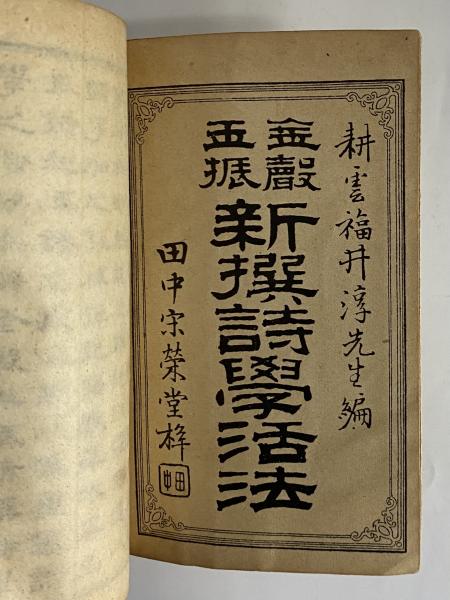 耕雲福井淳先生編
金聲
玉振
新撰詩學活法
田中宋榮堂梓
田中